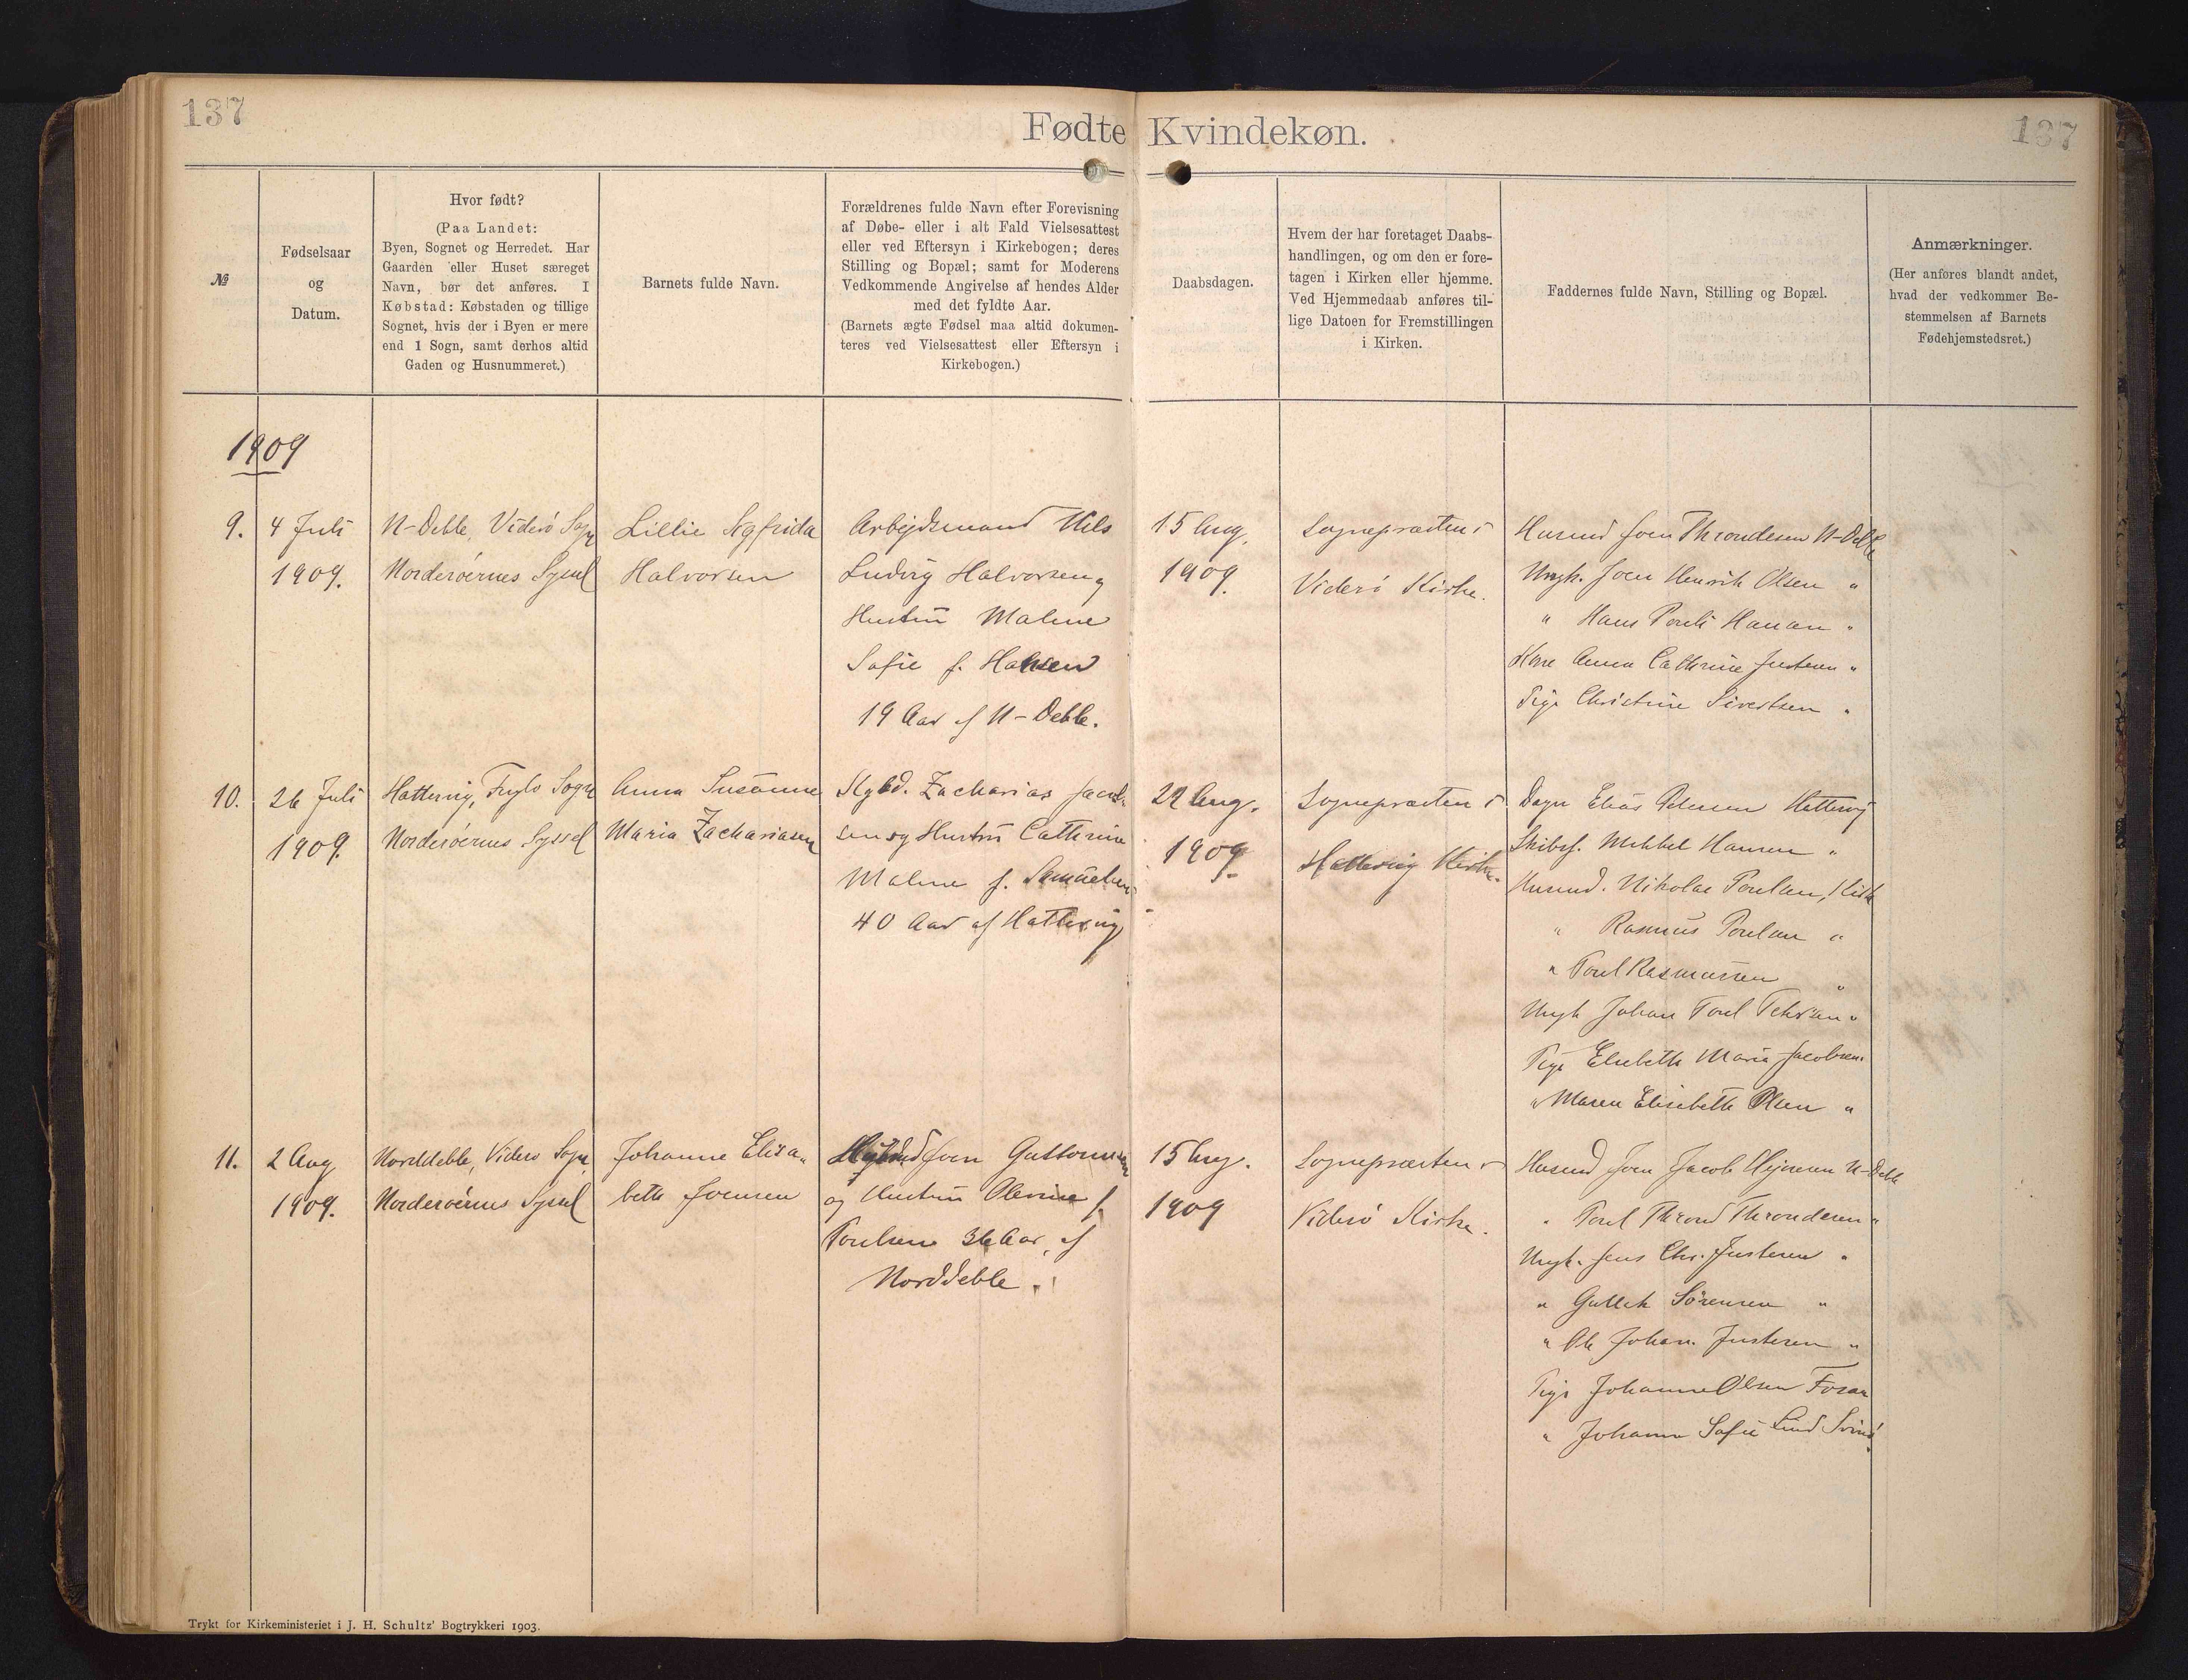 137
Fødte Kvindekøn.
137
№
Fødselsaar
og
Datum.
Hvor født?
(Paa Landet:
Byen, Sognet og Herredet. Har
Gaarden eller Huset særeget
Navn, bør det anføres. I
Købstad: Købstaden og tillige
Sognet, hvis der i Byen er mere
end 1 Sogn, samt derhos altid
Gaden og Husnummeret.)
Barnets fulde Navn.
Forældrenes fulde Navn efter Forevisning
af Døbe- eller i alt Fald Vielsesattest
eller ved Eftersyn i Kirkebogen; deres
Stilling og Bopæl; samt for Moderens
Vedkommende Angivelse af hendes Alder
med det fyldte Aar.
(Barnets ægte Fødsel maa altid dokumen-
teres ved Vielsesattest eller Eftersyn i
Kirkebogen.)
Daabsdagen.
Hvem der har foretaget Daabs-
handlingen, og om den er fore-
tagen i Kirken eller hjemme.
Ved Hjemmedaab anføres til-
lige Datoen for Fremstillingen
i Kirken.
Faddernes fulde Navn, Stilling og Bopæl.
Anmærkninger.
(Her anføres blandt andet,
hvad der vedkommer Be-
stemmelsen af Barnets
Fødehjemstedsret.)
1909
9.
4 Juli
1909.
N-Deble, Viderö Sogn
Norderöernes Syssel
Lillie
Halvorsen
Arbejdsmand Nils
Ludvig Halvorsen og
Hustru Malene
Sofie f. Hansen
19 Aar af N-Deble.
15 Aug.
1909.
Sognepræsten i
Viderö Kirke.
Husmd Joen Throndesen N-Deble
Ungk. Joen Henrik Olsen "
" Hans Pouli Hansen "
Kone Anna Cathrine Justesen "
Pige Christine Sivertsen "
10.
26 Juli
1909.
Hattervig, Fuglö Sogn
Norderöernes Syssel
Anna Susanne
Maria Zachariasen
Kgbd. Zacharias Jacob-
sen og Hustru Cathrine
Malene f. Samuelsen
40 Aar af Hattervig
22 Aug.
1909.
Sognepræsten i
Hattervig Kirke.
Elias Petersen Hattervig
Skibsf. Mikkel Hansen "
Husmd. Nikolai Poulsen, Kirke
" Rasmus Poulsen "
" Poul Rasmussen "
Ungk Johan Poul Petersen "
Pige Elsebeth Maria Jacobsen
" Maren Elisebeth Olsen "
11.
2 Aug
1909.
Norddeble, Viderö Sogn
Norderöernes Syssel
Johanne Elisa-
beth Joensen
Joen Guttormsen
og Hustru Olevine f.
Poulsen 36 Aar, af
Norddeble.
15 Aug.
1909
Sognepræsten i
Viderö Kirke.
Husmd Joen Jacob Hejnesen N-Deble
" Poul Thrond Throndesen "
Ungk. Jens Chr. Justesen "
" Gullak Sörensen "
" Ole Johan. Justesen "
Pige Johanne Olsen
" Johanne Sofie Lind Svinö
Trykt for Kirkeministeriet i J. H. Schultz' Bogtrykkeri 1903.